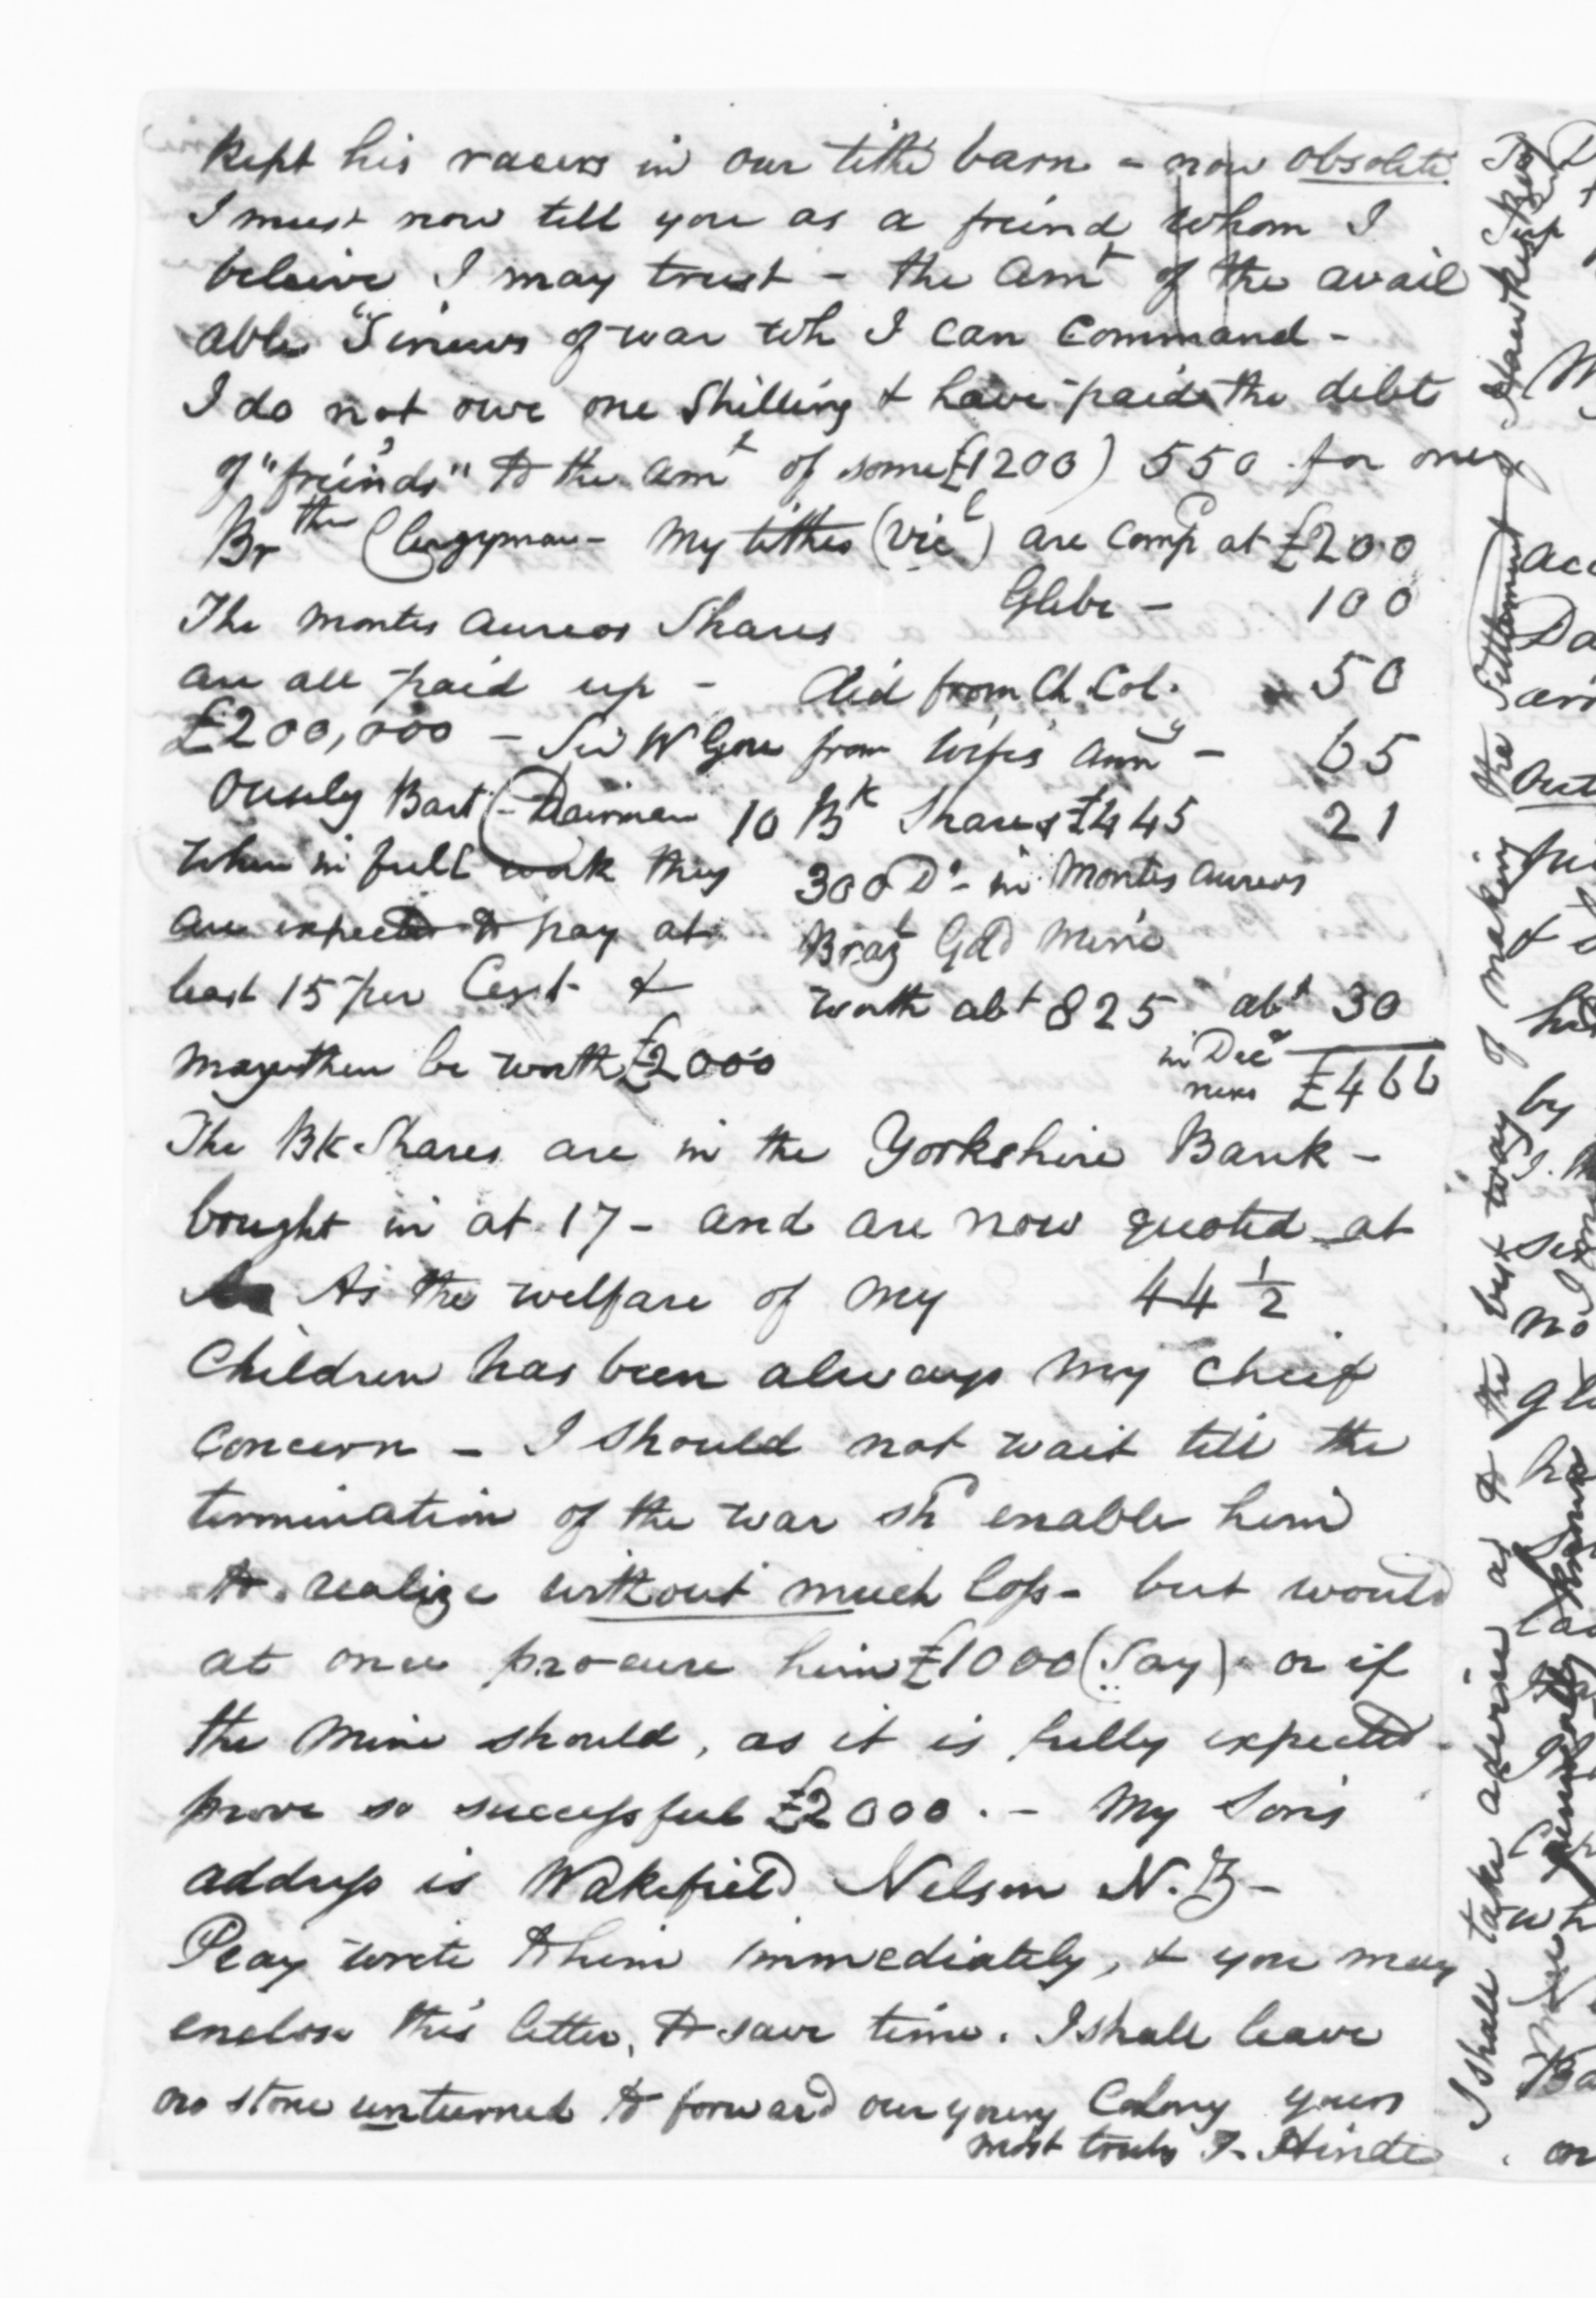 kept his racers in our tithe barn - now obsolete.
I must now tell you as a freind whom I
beleive I may trust - the amt of the avail
able "Sinews of war wh I can command -
I do not owe one Shilling & have paid the debts
of "freinds" to the amt of some £1200) 550 for one
Brther Clergyman - My tithes (Vicl) are comp at £200
Glebe - 100
The montes aureos Shares
are all paid up - Aid from Ch. Col. 50
£200,000 - Sir W Gore from Wife's annY - 65
Ousely Bart (- Chairman 10 Bk Shares £445 21
When in full work they 300 Do - in Montes Aureos
are expected to pay at Brazl Gold Mine
least 15 per Cent & worth abt 825 abt 30
may then be worth £2000 in Decr next £466
The BK Shares are in the Yorkshire Bank -
bought in at 17 - and are now quoted at
As the welfare of my 44 1/2
Children has been always my cheif
concern - I should not wait till the
termination of the war shd enable him
to realize without much loss - but would
at once procure him £1000 (Say) or if
the Mine should, as it is fully expected -
prove so successful £2000. - My Son's
address is Wakefield Nelson N.Z -
Pray write to him immediately, & you may
enclose this letter, to save time. I shall leave
no stone unturned to forward our young Colony yours
most truly T. Hinde
I shall take advice as to the best way of making the Settlement